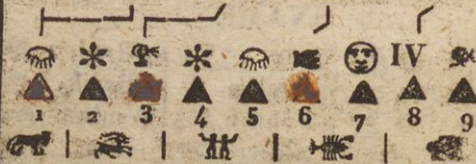 IV
1 2 3 4 5 6 7 8 9